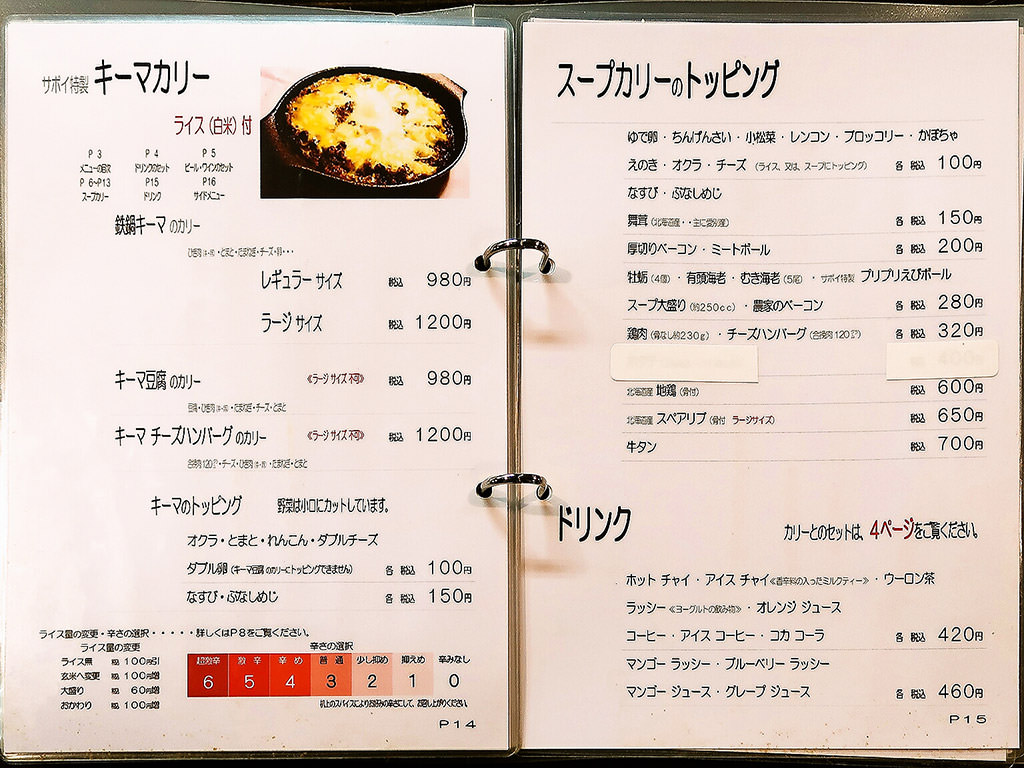 サボイ特製 キーマカリー
ライス（白米）付
P 3 P 4 P 5
メニューの目次 ドリンクのセット ビール・ワインのセット
P 6〜P13 P15 P16
スープカリー ドリンク サイドメニュー
鉄鍋キーマ のカリー
レギュラー サイズ 税込 980円
ラージ サイズ 税込 1200円
キーマ豆腐 のカリー 《ラージ サイズ 不可》 税込 980円
キーマ チーズハンバーグ のカリー 《ラージ サイズ 不可》 税込 1200円
キーマのトッピング 野菜は小口にカットしています。
オクラ・とまと・れんこん・ダブルチーズ
ダブル卵（キーマ豆腐 のカリーにトッピングできません） 各 税込 100円
なすび・ぶなしめじ 各 税込 150円
ライス量の変更・辛さの選択・・・・・詳しくはP8をご覧ください。
ライス量の変更 辛さの選択
ライス無 税込 100円引
玄米へ変更 税込 100円増
大盛り 税込 60円増
おかわり 税込 100円増
超激辛 激辛 辛め 普通 少し抑め 抑えめ 辛みなし
6 5 4 3 2 1 0
机上のスパイスによりお好みの辛さにして、お召し上がりください。
P14
スープカリーのトッピング
ゆで卵・ちんげんさい・小松菜・レンコン・ブロッコリー・かぼちゃ
えのき・オクラ・チーズ（ライス、又は、スープにトッピング） 各 税込 100円
なすび・ぶなしめじ
舞茸（北海道産・・主に愛別産） 各 税込 150円
厚切りベーコン・ミートボール 各 税込 200円
牡蛎（4個）・有頭海老・むき海老（5尾）・サボイ特製 プリプリえびボール
スープ大盛り（約250cc）・農家のベーコン 各 税込 280円
鶏肉（骨なし約230g）・チーズハンバーグ（合挽肉120㌘） 各 税込 320円
北海道産 地鶏（骨付） 税込 600円
北海道産 スペアリブ（骨付 ラージサイズ） 税込 650円
牛タン 税込 700円
ドリンク カリーとのセットは、4ページをご覧ください。
ホット チャイ・アイス チャイ≪香辛料の入ったミルクティー≫・ウーロン茶
ラッシー≪ヨーグルトの飲み物≫・オレンジ ジュース
コーヒー・アイス コーヒー・コカ コーラ 各 税込 420円
マンゴー ラッシー・ブルーベリー ラッシー
マンゴー ジュース・グレープ ジュース 各 税込 460円
P15